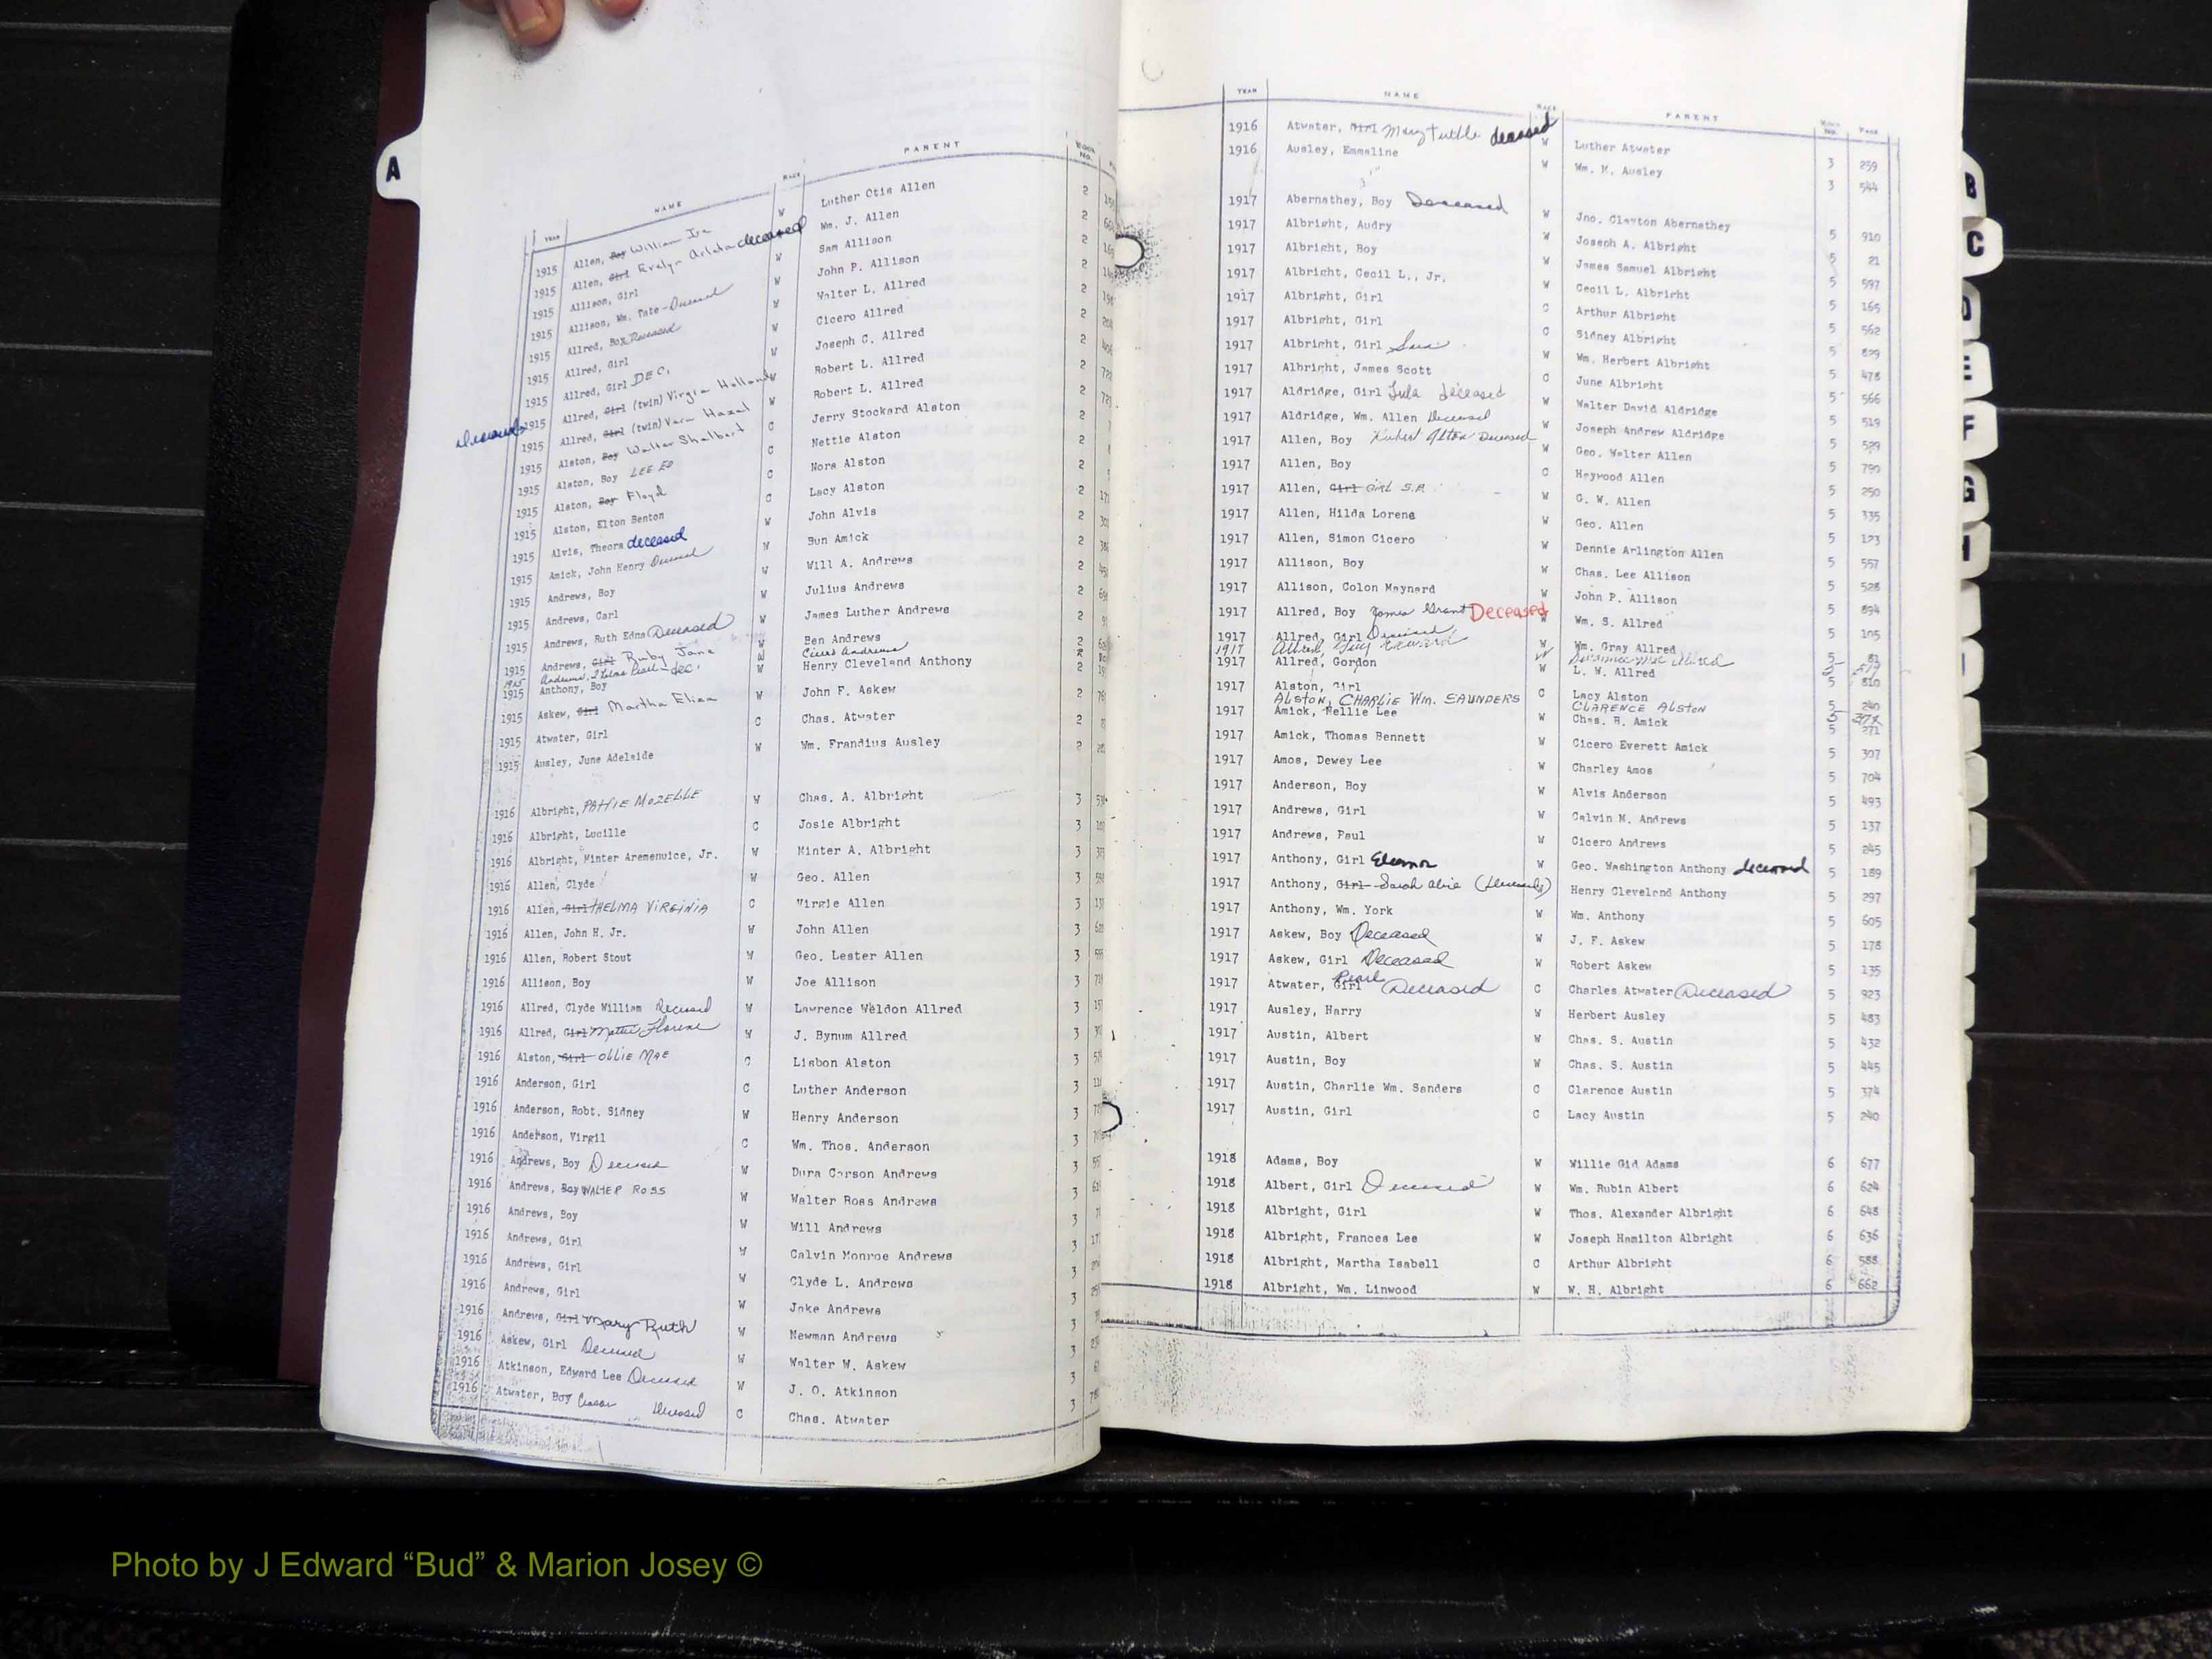 A
YEAR NAME RACE PARENT BOOK NO.
1915 Allen, Boy William Ira W Luther Otis Allen 2
1915 Allen, Girl Evelyn Arleta deceased Wm. J. Allen 2
1915 Allison, Girl W Sam Allison 2
1915 Allison, Wm. Tate - Deceased W John P. Allison 2
1915 Allred, Boy Deceased W Walter L. Allred 2
1915 Allred, Girl W Cicero Allred 2
1915 Allred, Girl DEC. W Joseph C. Allred 2
Deceased 1915 Allred, Girl (twin) Virgia Holland W Robert L. Allred 2
1915 Allred, Girl (twin) Vera Hazel W Robert L. Allred 2
1915 Alston, Boy Walter Shelbert C Jerry Stockard Alston 2
1915 Alston, Boy LEE ED C Nettie Alston 2
1915 Alston, Boy Floyd C Nora Alston 2
1915 Alston, Elton Benton C Lacy Alston 2
1915 Alvis, Theora deceased W John Alvis 2
1915 Amick, John Henry Deceased W Bun Amick 2
1915 Andrews, Boy W Will A. Andrews 2
1915 Andrews, Carl W Julius Andrews 2
1915 Andrews, Ruth Edna Deceased W James Luther Andrews 2
1915 Andrews, Girl Ruby Jane W Ben Andrews 2
1915 Andrews, Pearl - dec. W Cicero Andrews 2
1915 Anthony, Boy W Henry Cleveland Anthony 2
1915 Askew, Girl Martha Eliza W John F. Askew 2
1915 Atwater, Girl C Chas. Atwater 2
1915 Ausley, June Adelaide W Wm. Frandius Ausley 2
1916 Albright, PATTIE MOZELLE W Chas. A. Albright 3
1916 Albright, Lucille C Josie Albright 3
1916 Albright, Minter Aremenuice, Jr. W Minter A. Albright 3
1916 Allen, Clyde W Geo. Allen 3
1916 Allen, Girl THELMA VIRGINIA C Virgie Allen 3
1916 Allen, John H. Jr. W John Allen 3
1916 Allen, Robert Stout W Geo. Lester Allen 3
1916 Allison, Boy W Joe Allison 3
1916 Allred, Clyde William Deceased W Lawrence Weldon Allred 3
1916 Allred, Girl Mattie Florine W J. Bynum Allred 3
1916 Alston, Girl OLLIE MAE C Lisbon Alston 3
1916 Anderson, Girl C Luther Anderson 3
1916 Anderson, Robt. Sidney W Henry Anderson 3
1916 Anderson, Virgil C Wm. Thos. Anderson 3
1916 Andrews, Boy Deceased W Dura Carson Andrews 3
1916 Andrews, Boy WALTER ROSS W Walter Ross Andrews 3
1916 Andrews, Boy W Will Andrews 3
1916 Andrews, Girl W Calvin Monroe Andrews 3
1916 Andrews, Girl W Clyde L. Andrews 3
1916 Andrews, Girl W Jake Andrews 3
1916 Andrews, Girl Mary Ruth W Newman Andrews 3
1916 Askew, Girl Deceased W Walter W. Askew 3
1916 Atkinson, Edward Lee Deceased W J. O. Atkinson 3
1916 Atwater, Boy Deceased C Chas. Atwater 3
YEAR NAME RACE PARENT BOOK NO. PAGE
1916 Atwater, Girl Mary Tuttle deceased W Luther Atwater 3 259
1916 Ausley, Emmaline W Wm. M. Ausley 3 544
1917 Abernathey, Boy Deceased W Jno. Clayton Abernathey 5 910
1917 Albright, Audry W Joseph A. Albright 5 21
1917 Albright, Boy W James Samuel Albright 5 597
1917 Albright, Cecil L., Jr. W Cecil L. Albright 5 165
1917 Albright, Girl C Arthur Albright 5 562
1917 Albright, Girl C Sidney Albright 5 829
1917 Albright, Girl W Wm. Herbert Albright 5 478
1917 Albright, James Scott C June Albright 5 566
1917 Aldridge, Girl Lula deceased W Walter David Aldridge 5 519
1917 Aldridge, Wm. Allen Deceased W Joseph Andrew Aldridge 5 529
1917 Allen, Boy Robert Alton Deceased W Geo. Walter Allen 5 790
1917 Allen, Boy C Haywood Allen 5 250
1917 Allen, Girl GIRL S.P. W G. W. Allen 5 335
1917 Allen, Hilda Lorene W Geo. Allen 5 123
1917 Allen, Simon Cicero W Dennie Arlington Allen 5 557
1917 Allison, Boy W Chas. Lee Allison 5 528
1917 Allison, Colon Maynard W John P. Allison 5 894
1917 Allred, Boy James Grant Deceased W Wm. S. Allred 5 105
1917 Allred, Girl Deceased W Wm. Gray Allred 5 81
1917 Allred, Guy Edward W Allred 5
1917 Allred, Gordon W L. W. Allred 5 810
1917 Alston, Girl C Lacy Alston 5 240
ALSTON, CHARLIE WM. SAUNDERS CLARENCE ALSTON 5 374
1917 Amick, Nellie Lee W Chas. R. Amick 5 271
1917 Amick, Thomas Bennett W Cicero Everett Amick 5 307
1917 Amos, Dewey Lee W Charley Amos 5 704
1917 Anderson, Boy W Alvis Anderson 5 493
1917 Andrews, Girl W Calvin M. Andrews 5 137
1917 Andrews, Paul W Cicero Andrews 5 245
1917 Anthony, Girl Eleanor W Geo. Washington Anthony deceased 5 189
1917 Anthony, Girl Sarah (Deceased) Henry Cleveland Anthony 5 297
1917 Anthony, Wm. York W Wm. Anthony 5 605
1917 Askew, Boy Deceased W J. F. Askew 5 178
1917 Askew, Girl Deceased W Robert Askew 5 135
1917 Atwater, Girl Pearl Deceased C Charles Atwater Deceased 5 923
1917 Ausley, Harry W Herbert Ausley 5 483
1917 Austin, Albert W Chas. S. Austin 5 432
1917 Austin, Boy W Chas. S. Austin 5 445
1917 Austin, Charlie Wm. Sanders C Clarence Austin 5 374
1917 Austin, Girl C Lacy Austin 5 240
1918 Adams, Boy W Willie Gid Adams 6 677
1918 Albert, Girl Deceased W Wm. Rubin Albert 6 624
1918 Albright, Girl W Thos. Alexander Albright 6 648
1918 Albright, Frances Lee W Joseph Hamilton Albright 6 636
1918 Albright, Martha Isabell C Arthur Albright 6 588
1918 Albright, Wm. Linwood W W. H. Albright 6 662
B
C
D
E
F
G
H
Photo by J Edward “Bud” & Marion Josey ©